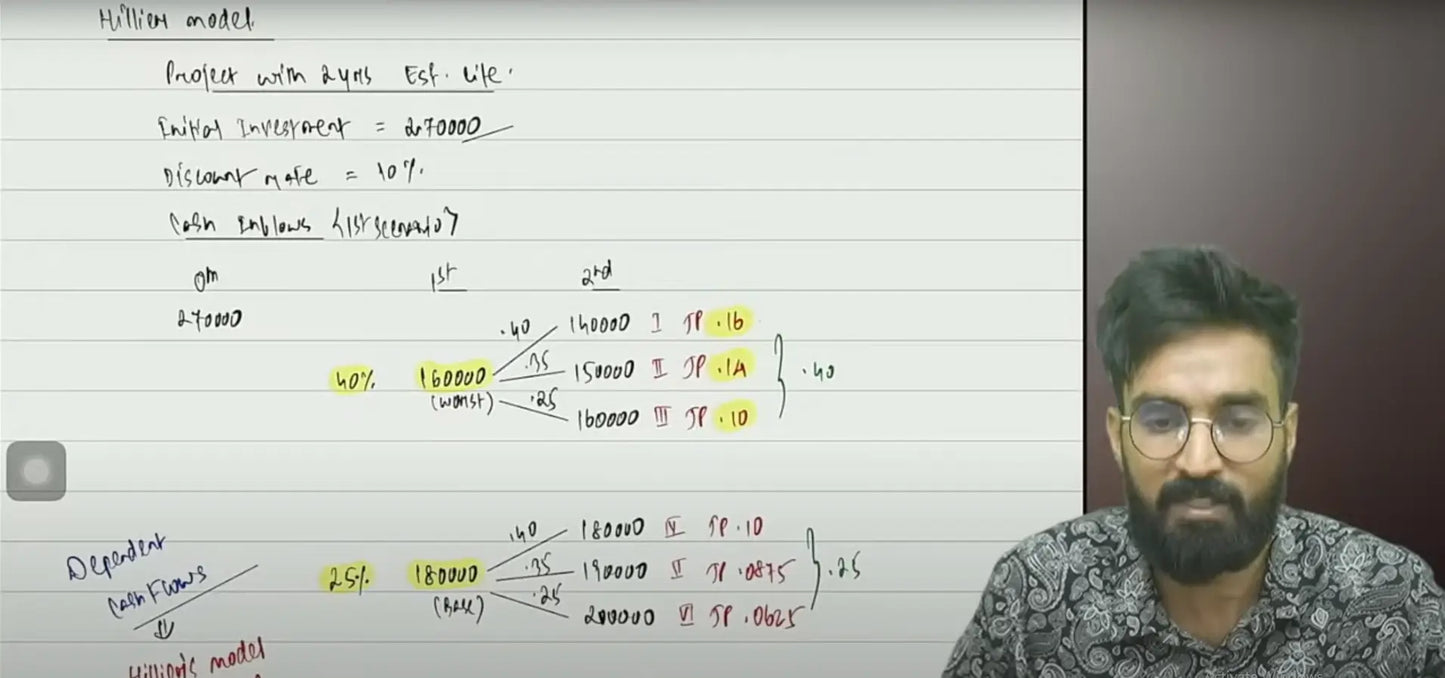 Hillier model.
Project with 2 yrs Est. Life.
Initial Investment = 270000
Discount rate = 10%.
Cash Inflows {1st scenario}
0th 1st 2nd
270000
.40 140000 I JP .16
40% 160000 .35 150000 II JP .14 } .40
(worst) .25 160000 III JP .10
.40 180000 IV JP .10
25% 180000 .35 190000 V JP .0875 } .25
(Base) .25 200000 VI JP .0625
Dependent
Cash Flows
⇓
Hillier's model
Activate Windows